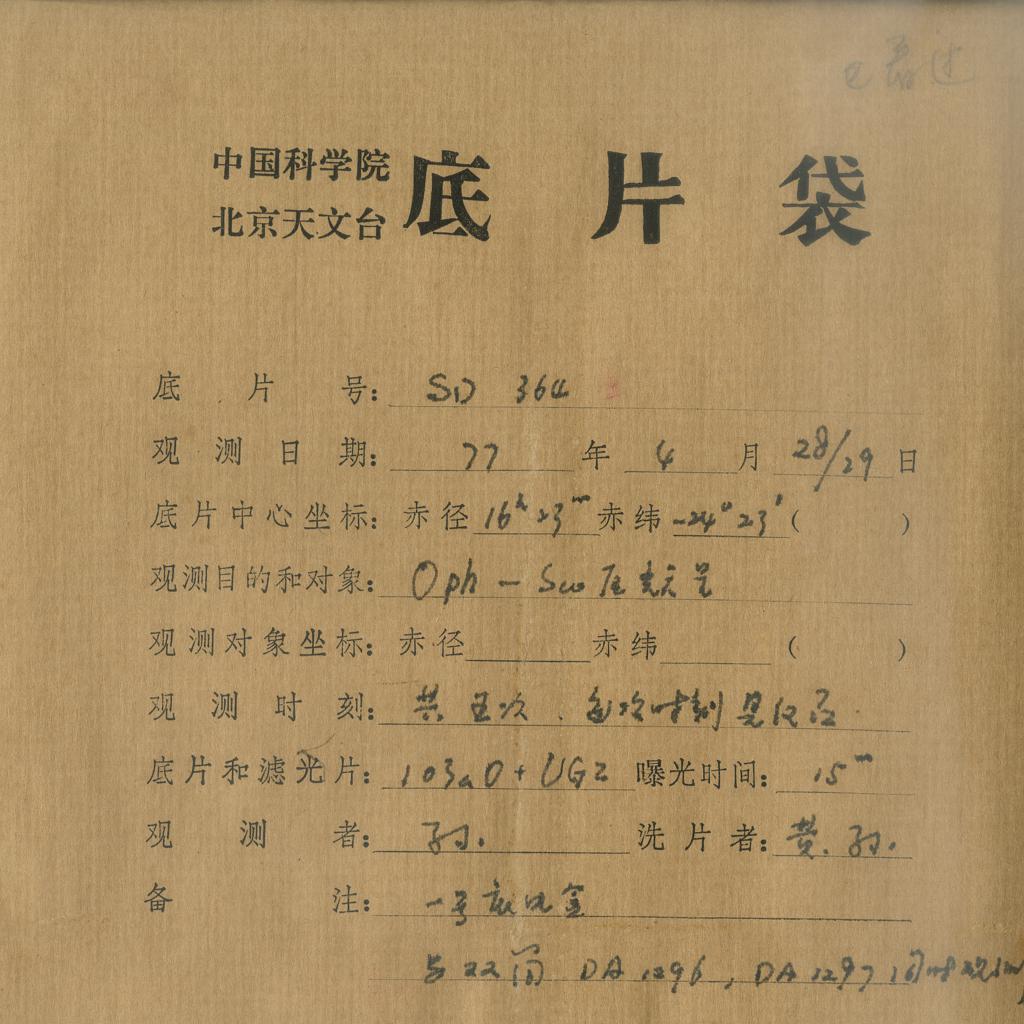 已看过
中国科学院
北京天文台 底片袋
底片号: SD 364
观测日期: 77 年 4 月 28/29 日
底片中心坐标: 赤径 16h 23m 赤纬 -24° 23' ( )
观测目的和对象: Oph - Sco 星
观测对象坐标: 赤径 赤纬 ( )
观测时刻: 共五次、每次时刻见记录
底片和滤光片: 103aO + UG2 曝光时间: 15m
观测者: 孙.
洗片者: 黄. 孙.
备注: 一号底片盒
与双筒 DA 1296, DA 1297 同时观测